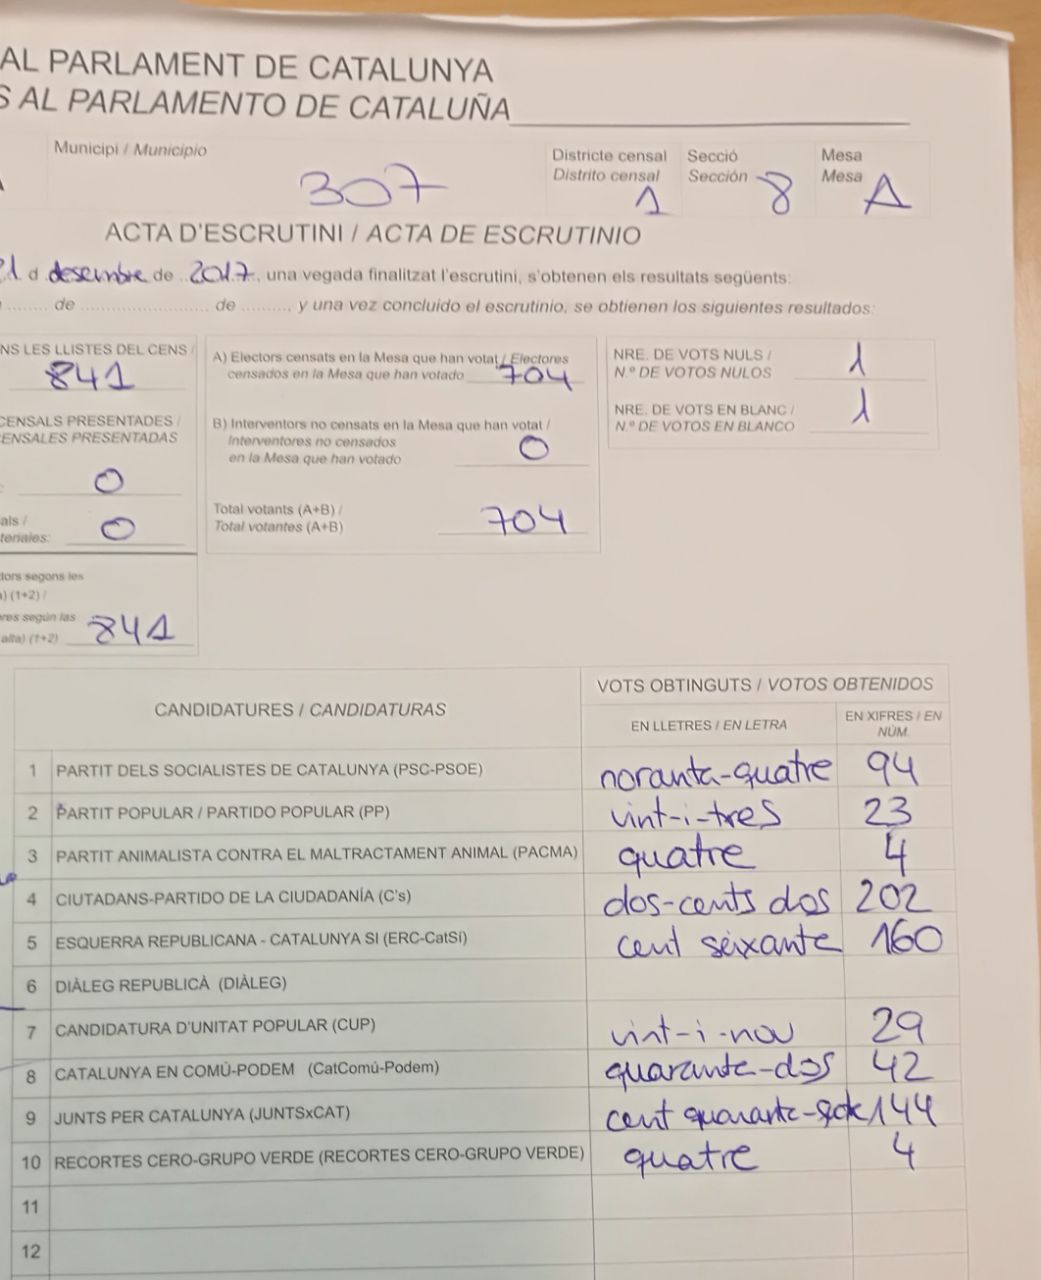 AL PARLAMENT DE CATALUNYA
S AL PARLAMENTO DE CATALUÑA
Municipi / Municipio
307
Districte censal
Distrito censal
1
Secció
Sección
8
Mesa
Mesa
A
ACTA D'ESCRUTINI / ACTA DE ESCRUTINIO
21 d desembre de 2017, una vegada finalitzat l'escrutini, s'obtenen els resultats següents:
de de y una vez concluido el escrutinio, se obtienen los siguientes resultados:
NS LES LLISTES DEL CENS /
841
CENSALS PRESENTADES /
ENSALES PRESENTADAS
0
als /
teriales: 0
tors segons les
a) (1+2) /
ores según las
alta) (1+2) 841
A) Electors censats en la Mesa que han votat / Electores
censados en la Mesa que han votado 704
B) Interventors no censats en la Mesa que han votat /
Interventores no censados
en la Mesa que han votado 0
Total votants (A+B) /
Total votantes (A+B) 704
NRE. DE VOTS NULS /
N.º DE VOTOS NULOS 1
NRE. DE VOTS EN BLANC /
N.º DE VOTOS EN BLANCO 1
CANDIDATURES / CANDIDATURAS
VOTS OBTINGUTS / VOTOS OBTENIDOS
EN LLETRES / EN LETRA
EN XIFRES / EN
NÚM.
1 PARTIT DELS SOCIALISTES DE CATALUNYA (PSC-PSOE) noranta-quatre 94
2 PARTIT POPULAR / PARTIDO POPULAR (PP) vint-i-tres 23
3 PARTIT ANIMALISTA CONTRA EL MALTRACTAMENT ANIMAL (PACMA) quatre 4
4 CIUTADANS-PARTIDO DE LA CIUDADANÍA (C's) dos-cents dos 202
5 ESQUERRA REPUBLICANA - CATALUNYA SI (ERC-CatSí) cent seixante 160
6 DIÀLEG REPUBLICÀ (DIÀLEG)
7 CANDIDATURA D'UNITAT POPULAR (CUP) vint-i-nou 29
8 CATALUNYA EN COMÚ-PODEM (CatComú-Podem) quarante-dos 42
9 JUNTS PER CATALUNYA (JUNTSxCAT) cent 144
10 RECORTES CERO-GRUPO VERDE (RECORTES CERO-GRUPO VERDE) quatre 4
11
12